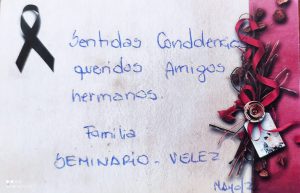 Sentidas Condolencias
queridos Amigos
hermanos.
Familia
SEMINARIO - VELEZ
MAYO/2